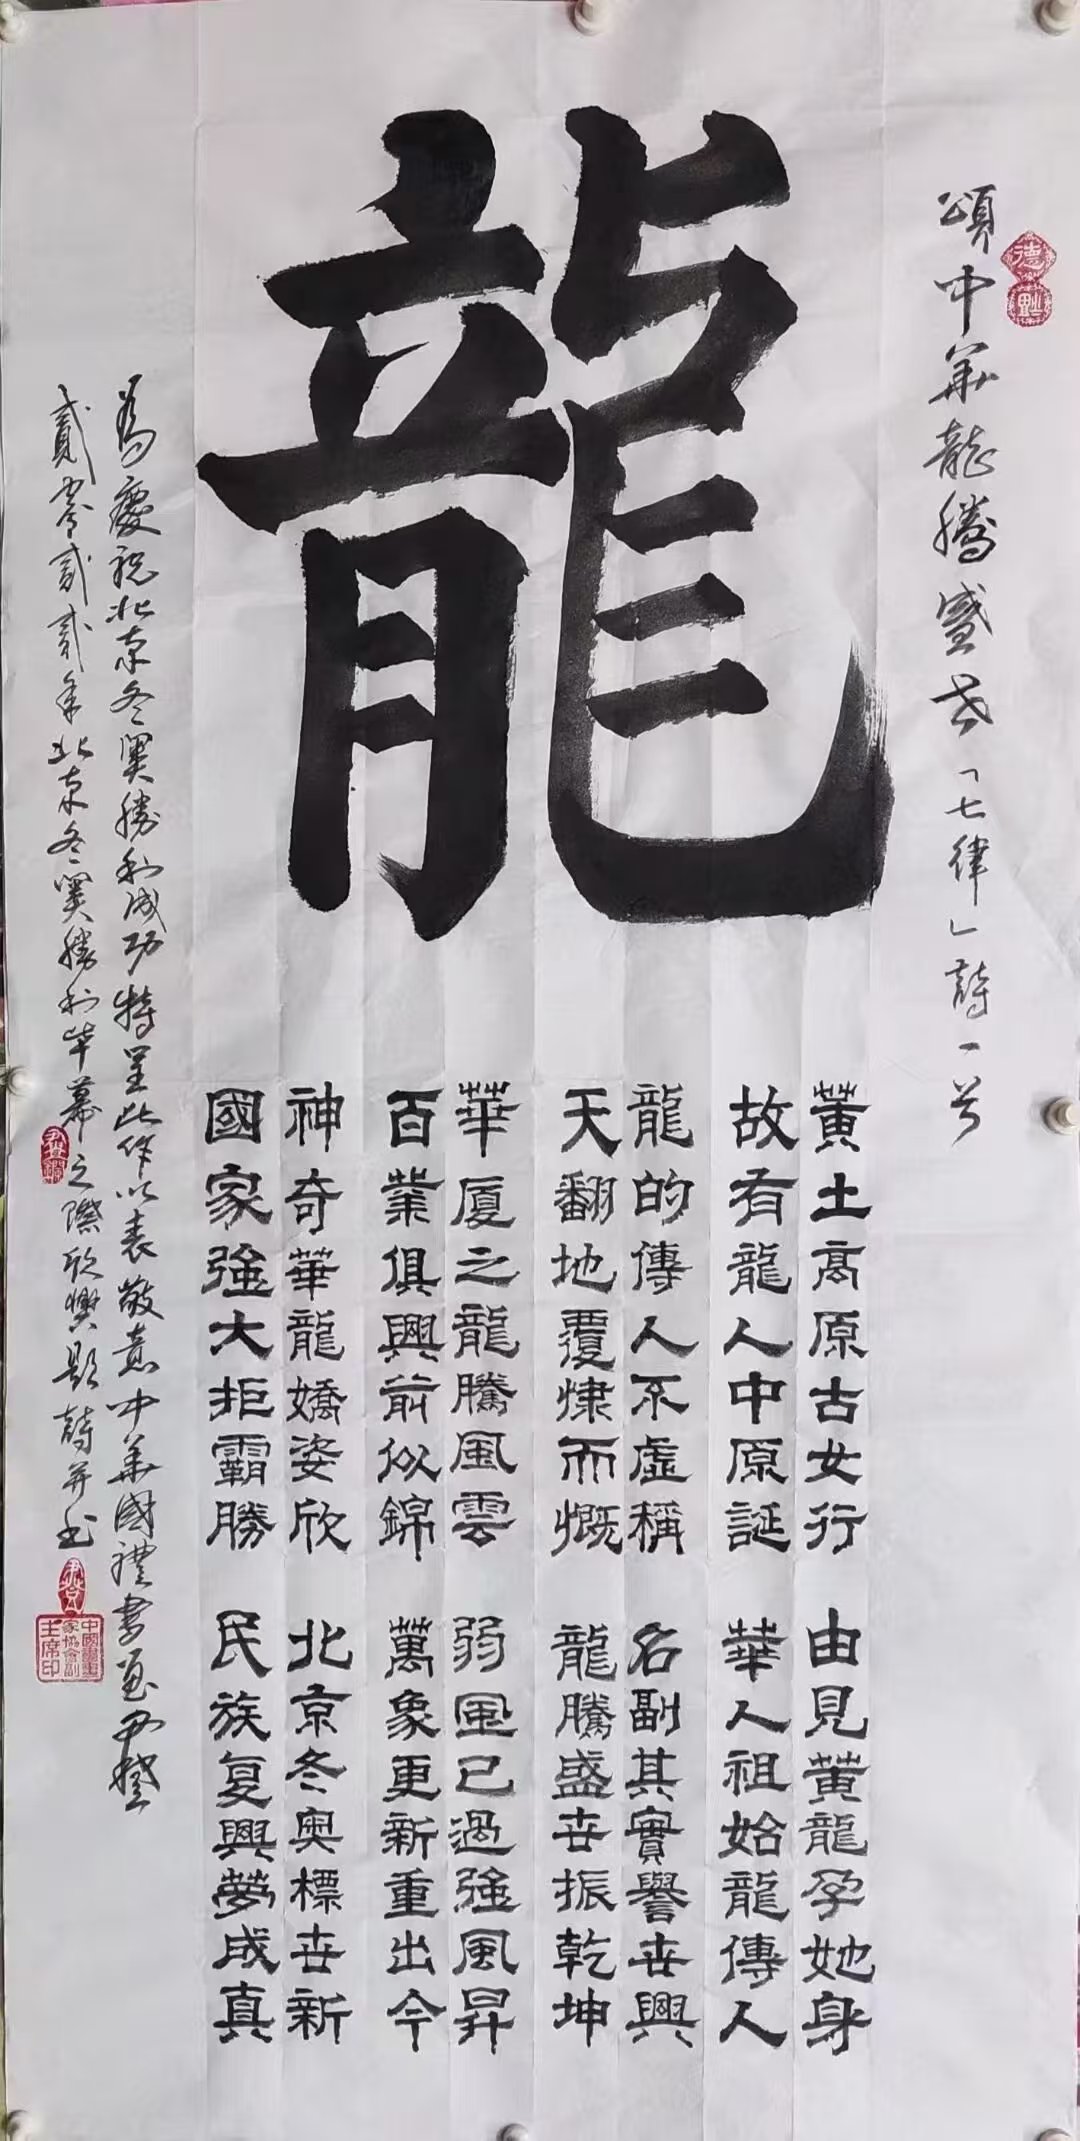 頌中華龍騰盛世「七律」詩一首
龍
黄土高原古女行 由見黄龍孕她身
故有龍人中原誕 華人祖始龍傳人
龍的傳人不虛稱 名副其實譽世興
天翻地覆慷而慨 龍騰盛世振乾坤
華厦之龍騰風雲 弱風已過強風昇
百業俱興前似錦 萬象更新重出今
神奇華龍嬌姿欣 北京冬奥標世新
國家強大拒霸勝 民族复興夢成真
為慶祝北京冬奥勝利成功特呈此作以表敬意中華國禮書画
貳零貳貳年北京冬奥勝利毕幕之際欣興題詩并书
中國書畫家協會副主席印